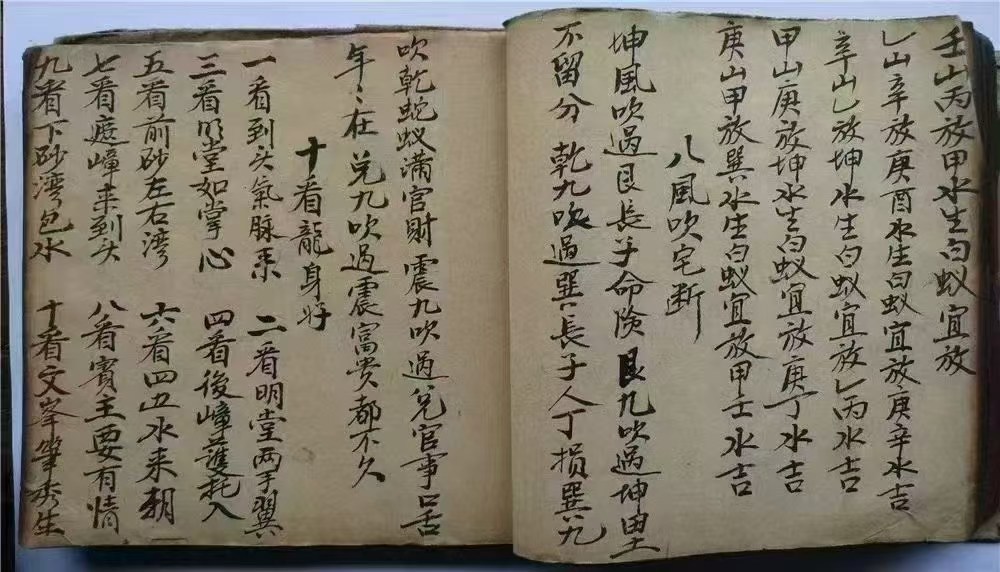 壬山丙放甲水生白蚁宜放
乙山辛放庚酉水生白蚁宜放庚辛水吉
辛山乙放坤水生白蚁宜放乙丙水吉
甲山庚放坤水生白蚁宜放庚丁水吉
庚山甲放巽水生白蚁宜放甲壬水吉
八風吹宅断
坤風吹过艮長子命険艮九吹过坤田土
不留分乾九吹過巽長子人丁損巽九
吹乾蛇蚁满官財震九吹过兌官事口舌
年〻在兌九吹过震富贵都不久
十看龍身好
一看到头氣脉来 二看明堂两手翼
三看明堂如掌心 四看後嶂護托入
五看前砂左右湾 六看四边水来朝
七看遮嶂来到头 八看賓主要有情
九看下砂湾包水 十看文峯筆秀生